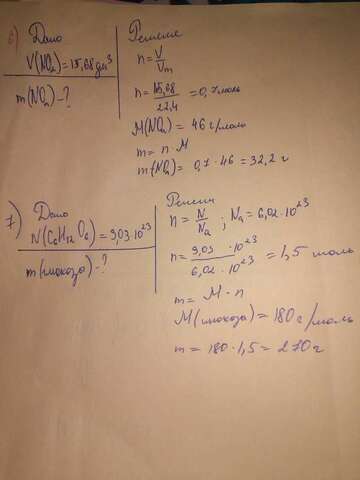 6) Дано
V(NO₂)=15,68дм³
m(NO₂)-?
Решение
n=V/Vm
n=15,68/22,4=0,7моль
M(NO₂)=46 г/моль
m=n·M
m(NO₂)=0,7·46=32,2 г
7) Дано
N(C₆H₁₂O₆)=9,03·10²³
m(глюкоза)-?
Решен
n=N/Na; Na=6,02·10²³
n=9,03·10²³/6,02·10²³=1,5 моль
m=M·n
M(глюкоза)=180г/моль
m=180·1,5=270г